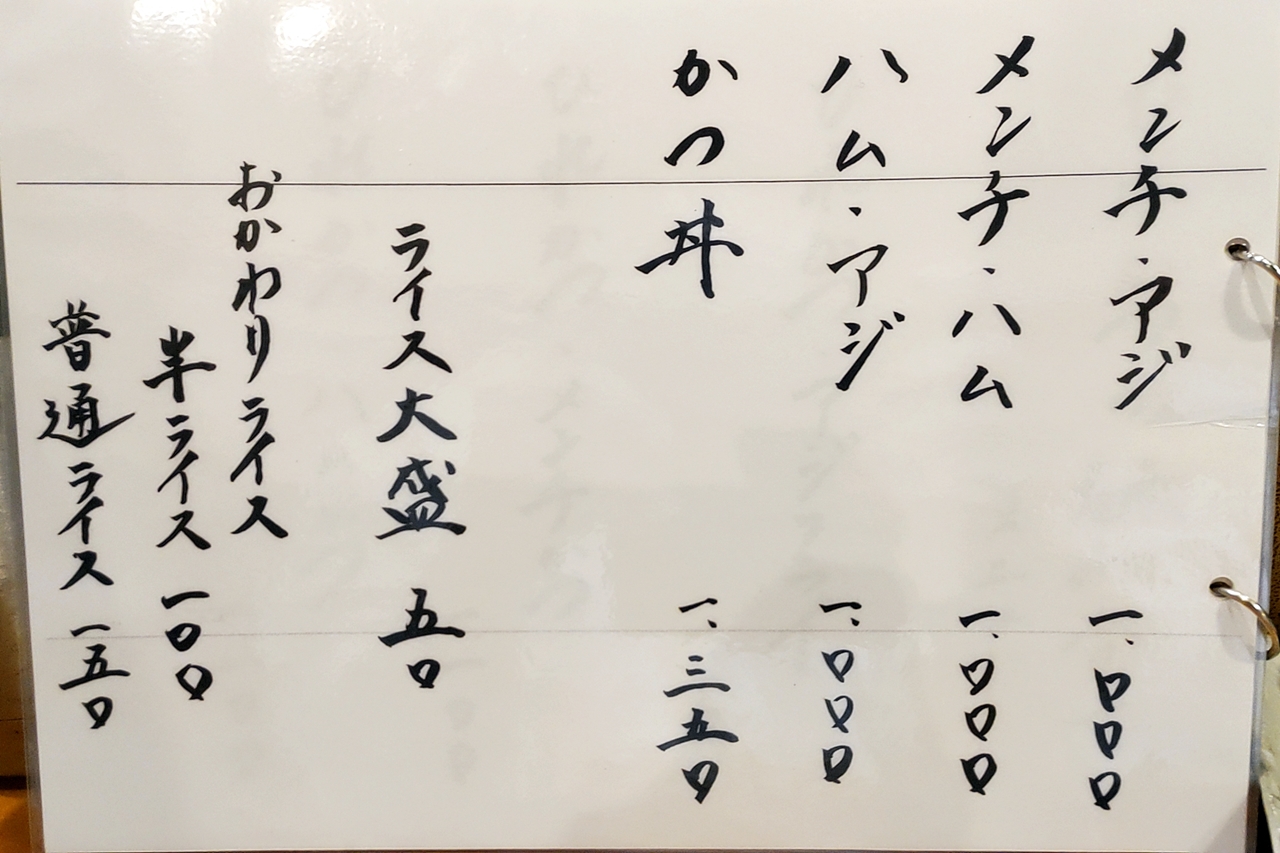 メンチ・アジ 一、〇〇〇
メンチ・ハム 一、〇〇〇
ハム・アジ 一、〇〇〇
かつ丼 一、三五〇
ライス大盛 五〇
おかわりライス
半ライス 一〇〇
普通ライス 一五〇